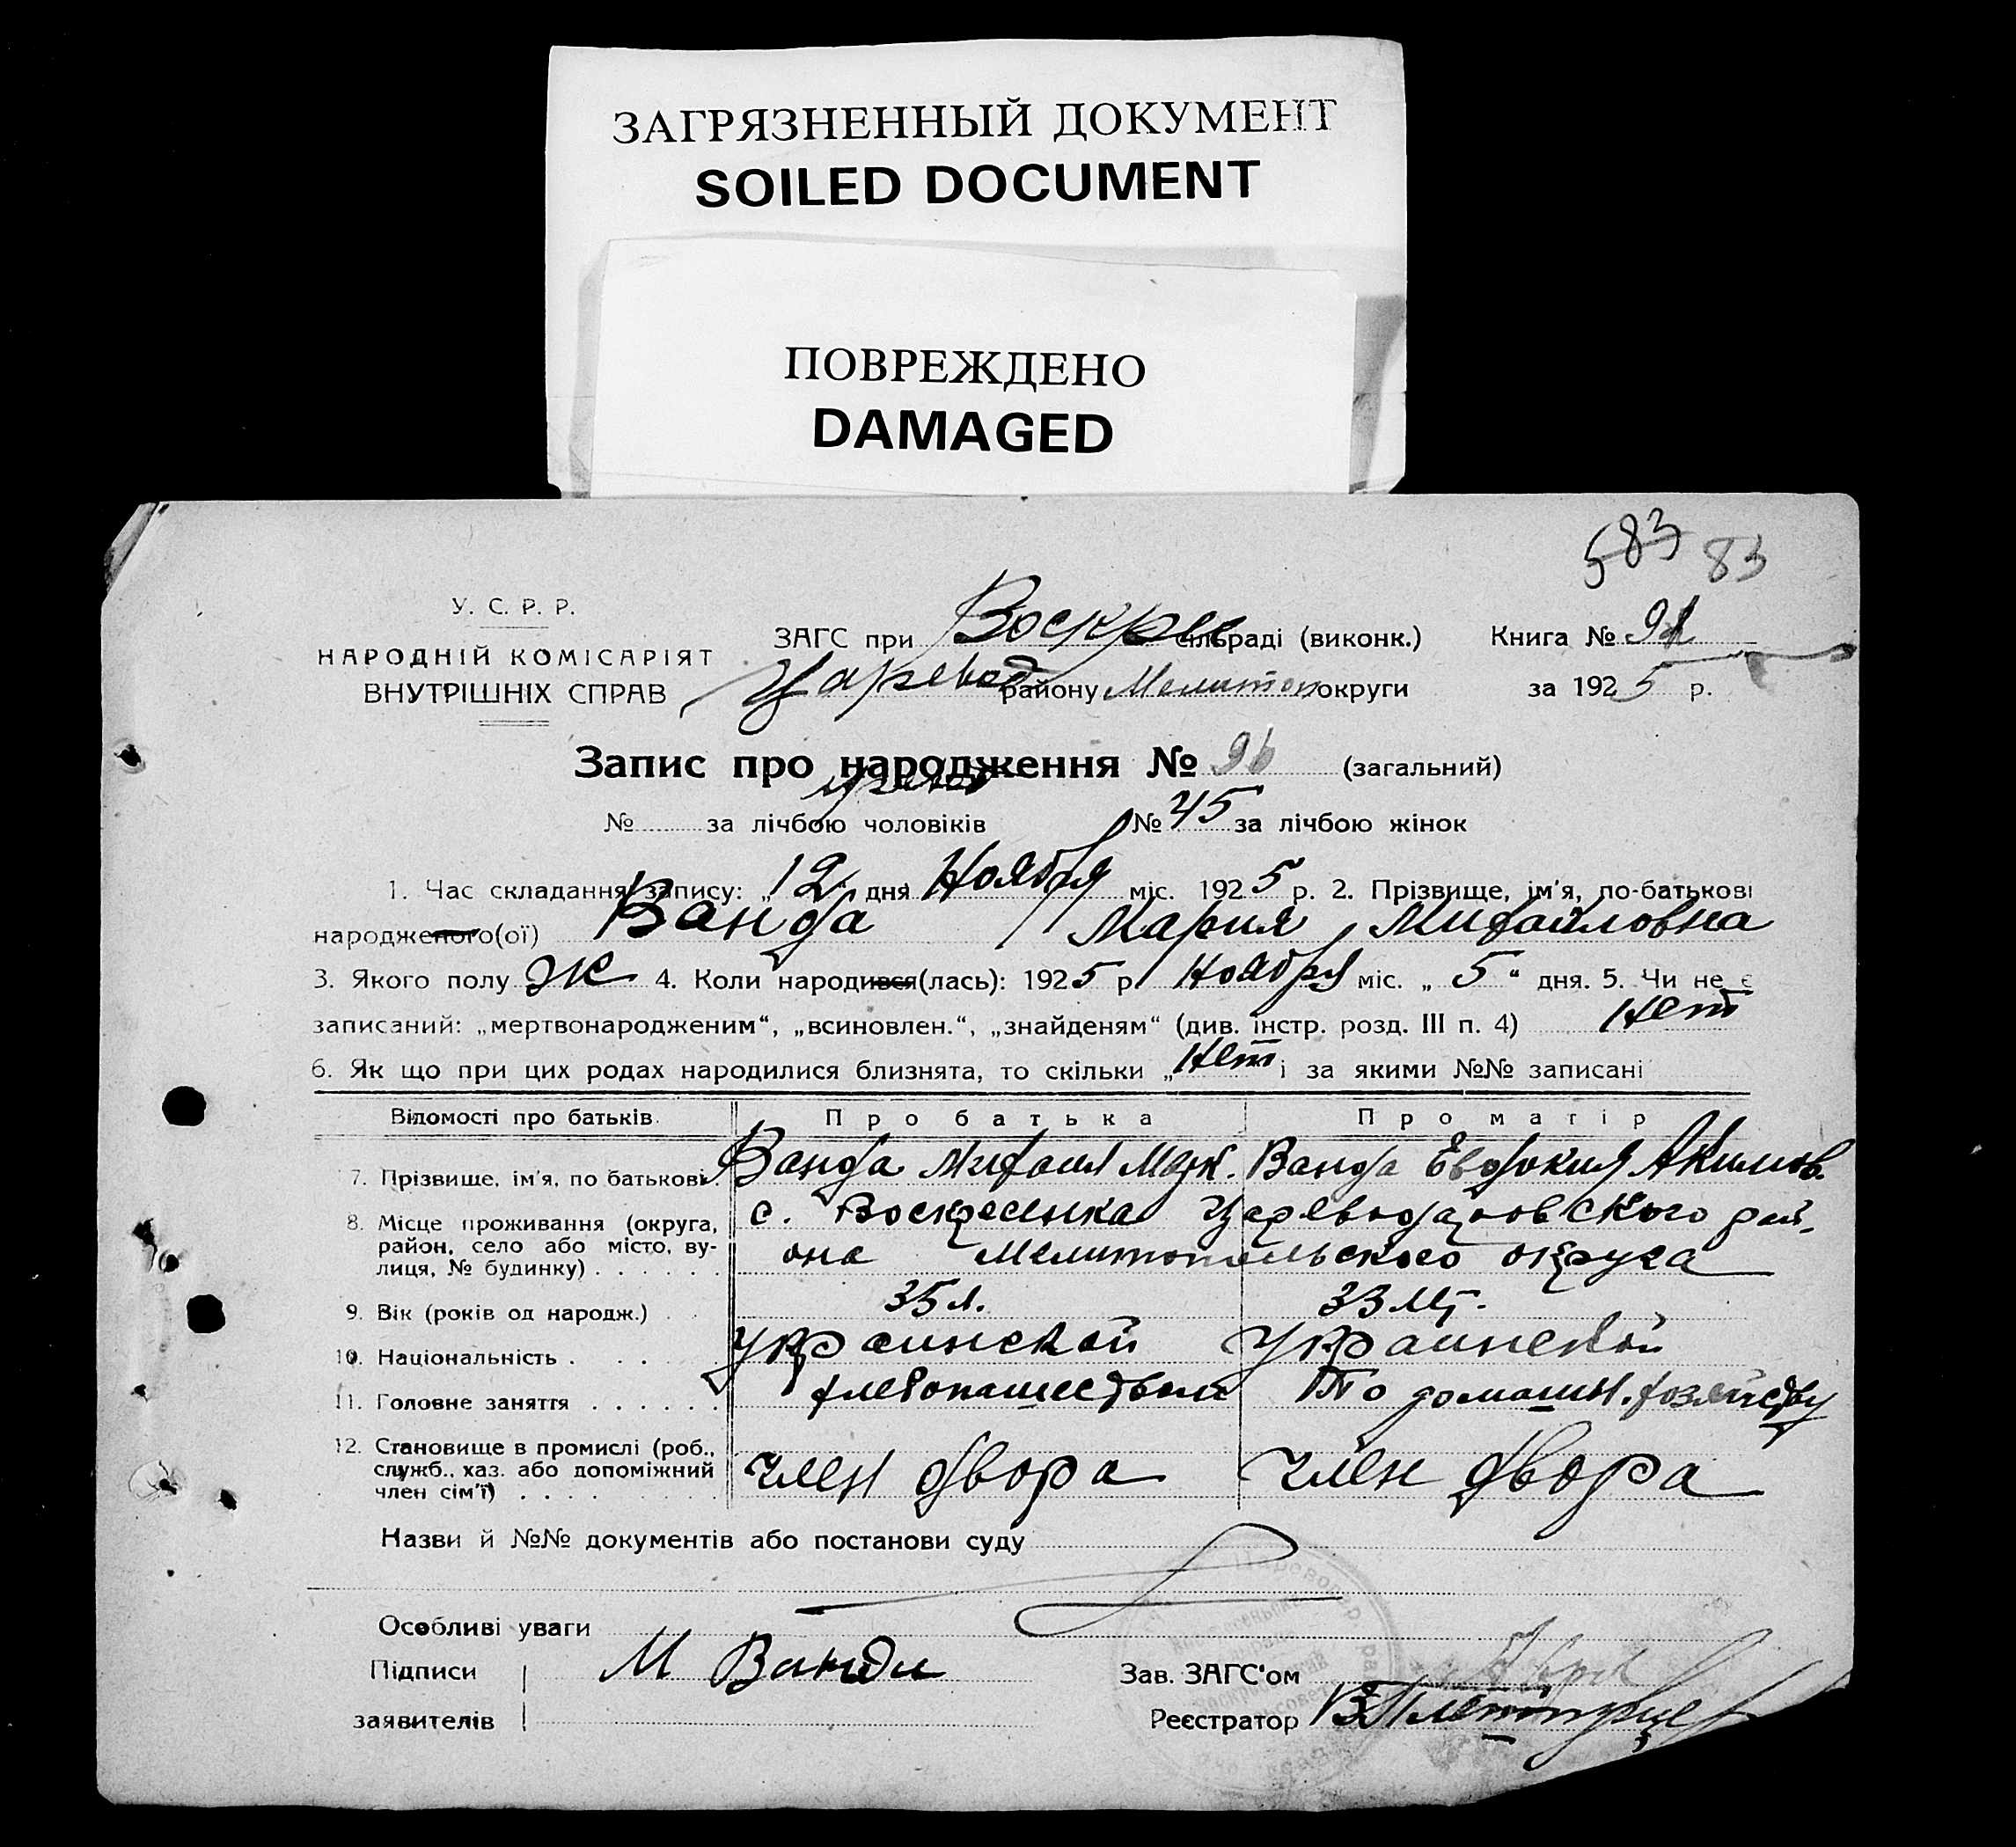 ЗАГРЯЗНЕННЫЙ ДОКУМЕНТ
SOILED DOCUMENT
ПОВРЕЖДЕНО
DAMAGED
583 83
У. С. Р. Р.
НАРОДНІЙ КОМІСАРІЯТ
ВНУТРІШНІХ СПРАВ
ЗАГС при Воскрес сільраді (виконк.) Книга №
Царевод району Мелитоп округи за 1925 р.
Запис про народження № 96 (загальний)
№ за лічбою чоловіків № 45 за лічбою жінок
1. Час складання запису: „12„ дня Ноября міс. 1925 р. 2. Прізвище, ім'я, по-батькові
народженого(ої) Ванда Мария Михайловна
3. Якого полу Ж 4. Коли народився(лась): 1925 р Ноября міс. „ 5 “ дня. 5. Чи не є
записаний: „мертвонародженим“, „всиновлен.“, „знайденям“ (див. інстр. розд. III п. 4) Нет
6. Як що при цих родах народилися близнята, то скільки „Нет і за якими №№ записані
Відомості про батьків. Про батька Про матір
7. Прізвище, ім'я, по батькові. Ванда Михаил Марк. Ванда Евдокия Акимов.
8. Місце проживання (округа, район, село або місто, вулиця, № будинку) с. Воскресенка Цареводаровского рай-
она Мелитопольского округа
9. Вік (років од народж.) 35 л. 33 лет.
10. Національність Украинской Украинской
11. Головне заняття хлебопашеством По домашн. хозяйству
12. Становище в промислі (роб., служб., хаз. або допоміжний член сім'ї) член двора член двора
Назви й №№ документів або постанови суду
Особливі уваги
Підписи М Ванди Зав. ЗАГС'ом
заявителів Реєстратор